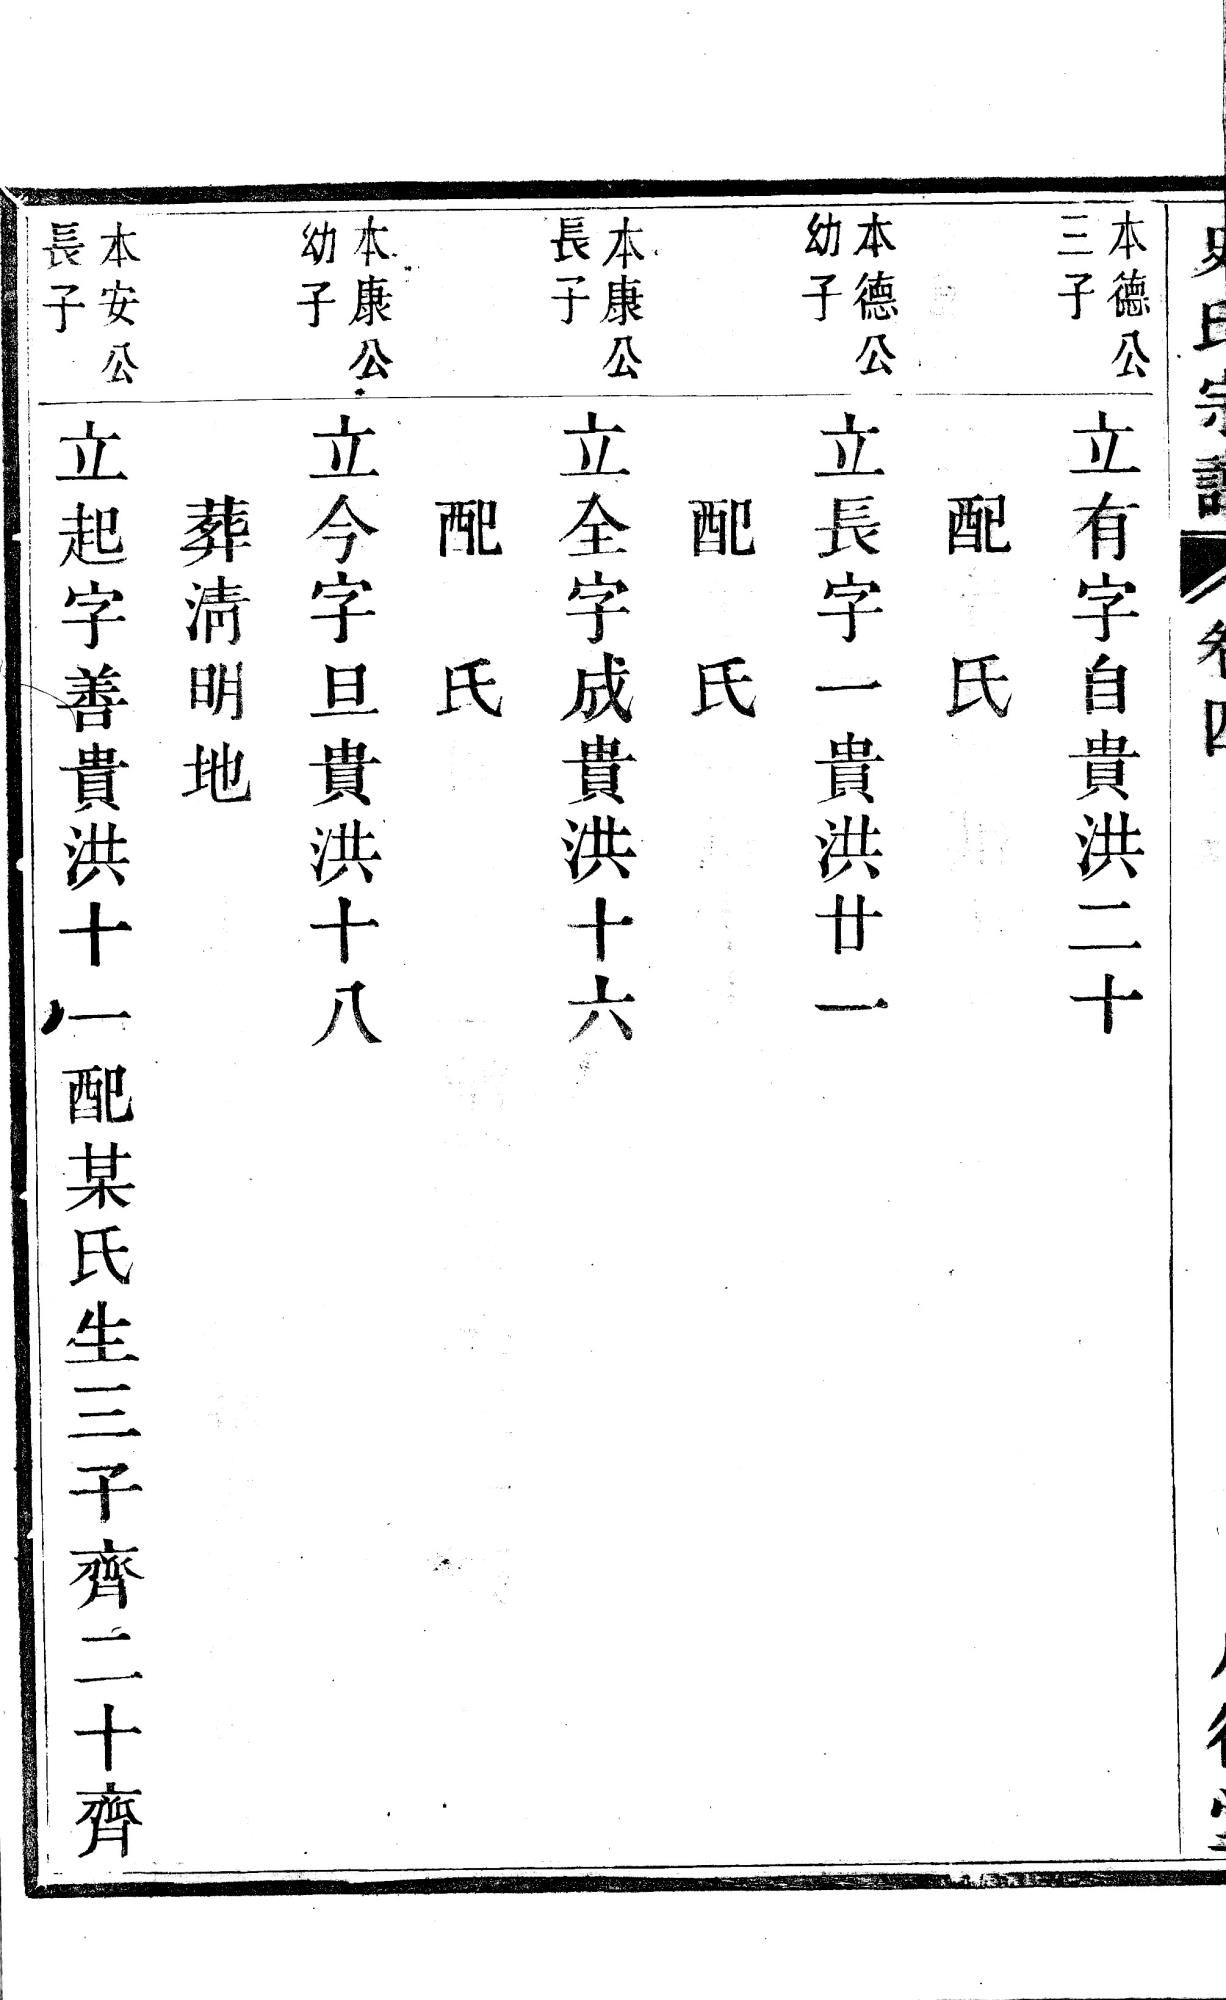 史氏宗譜
卷四
本德公
三子
立有字自貴洪二十
配　氏
本德公
幼子
立長字一貴洪廿一
配　氏
本康公
長子
立全字成貴洪十六
配　氏
本康公
幼子
立今字旦貴洪十八
葬淸明地
本安公
長子
立起字善貴洪十一配某氏生三子齊二十齊